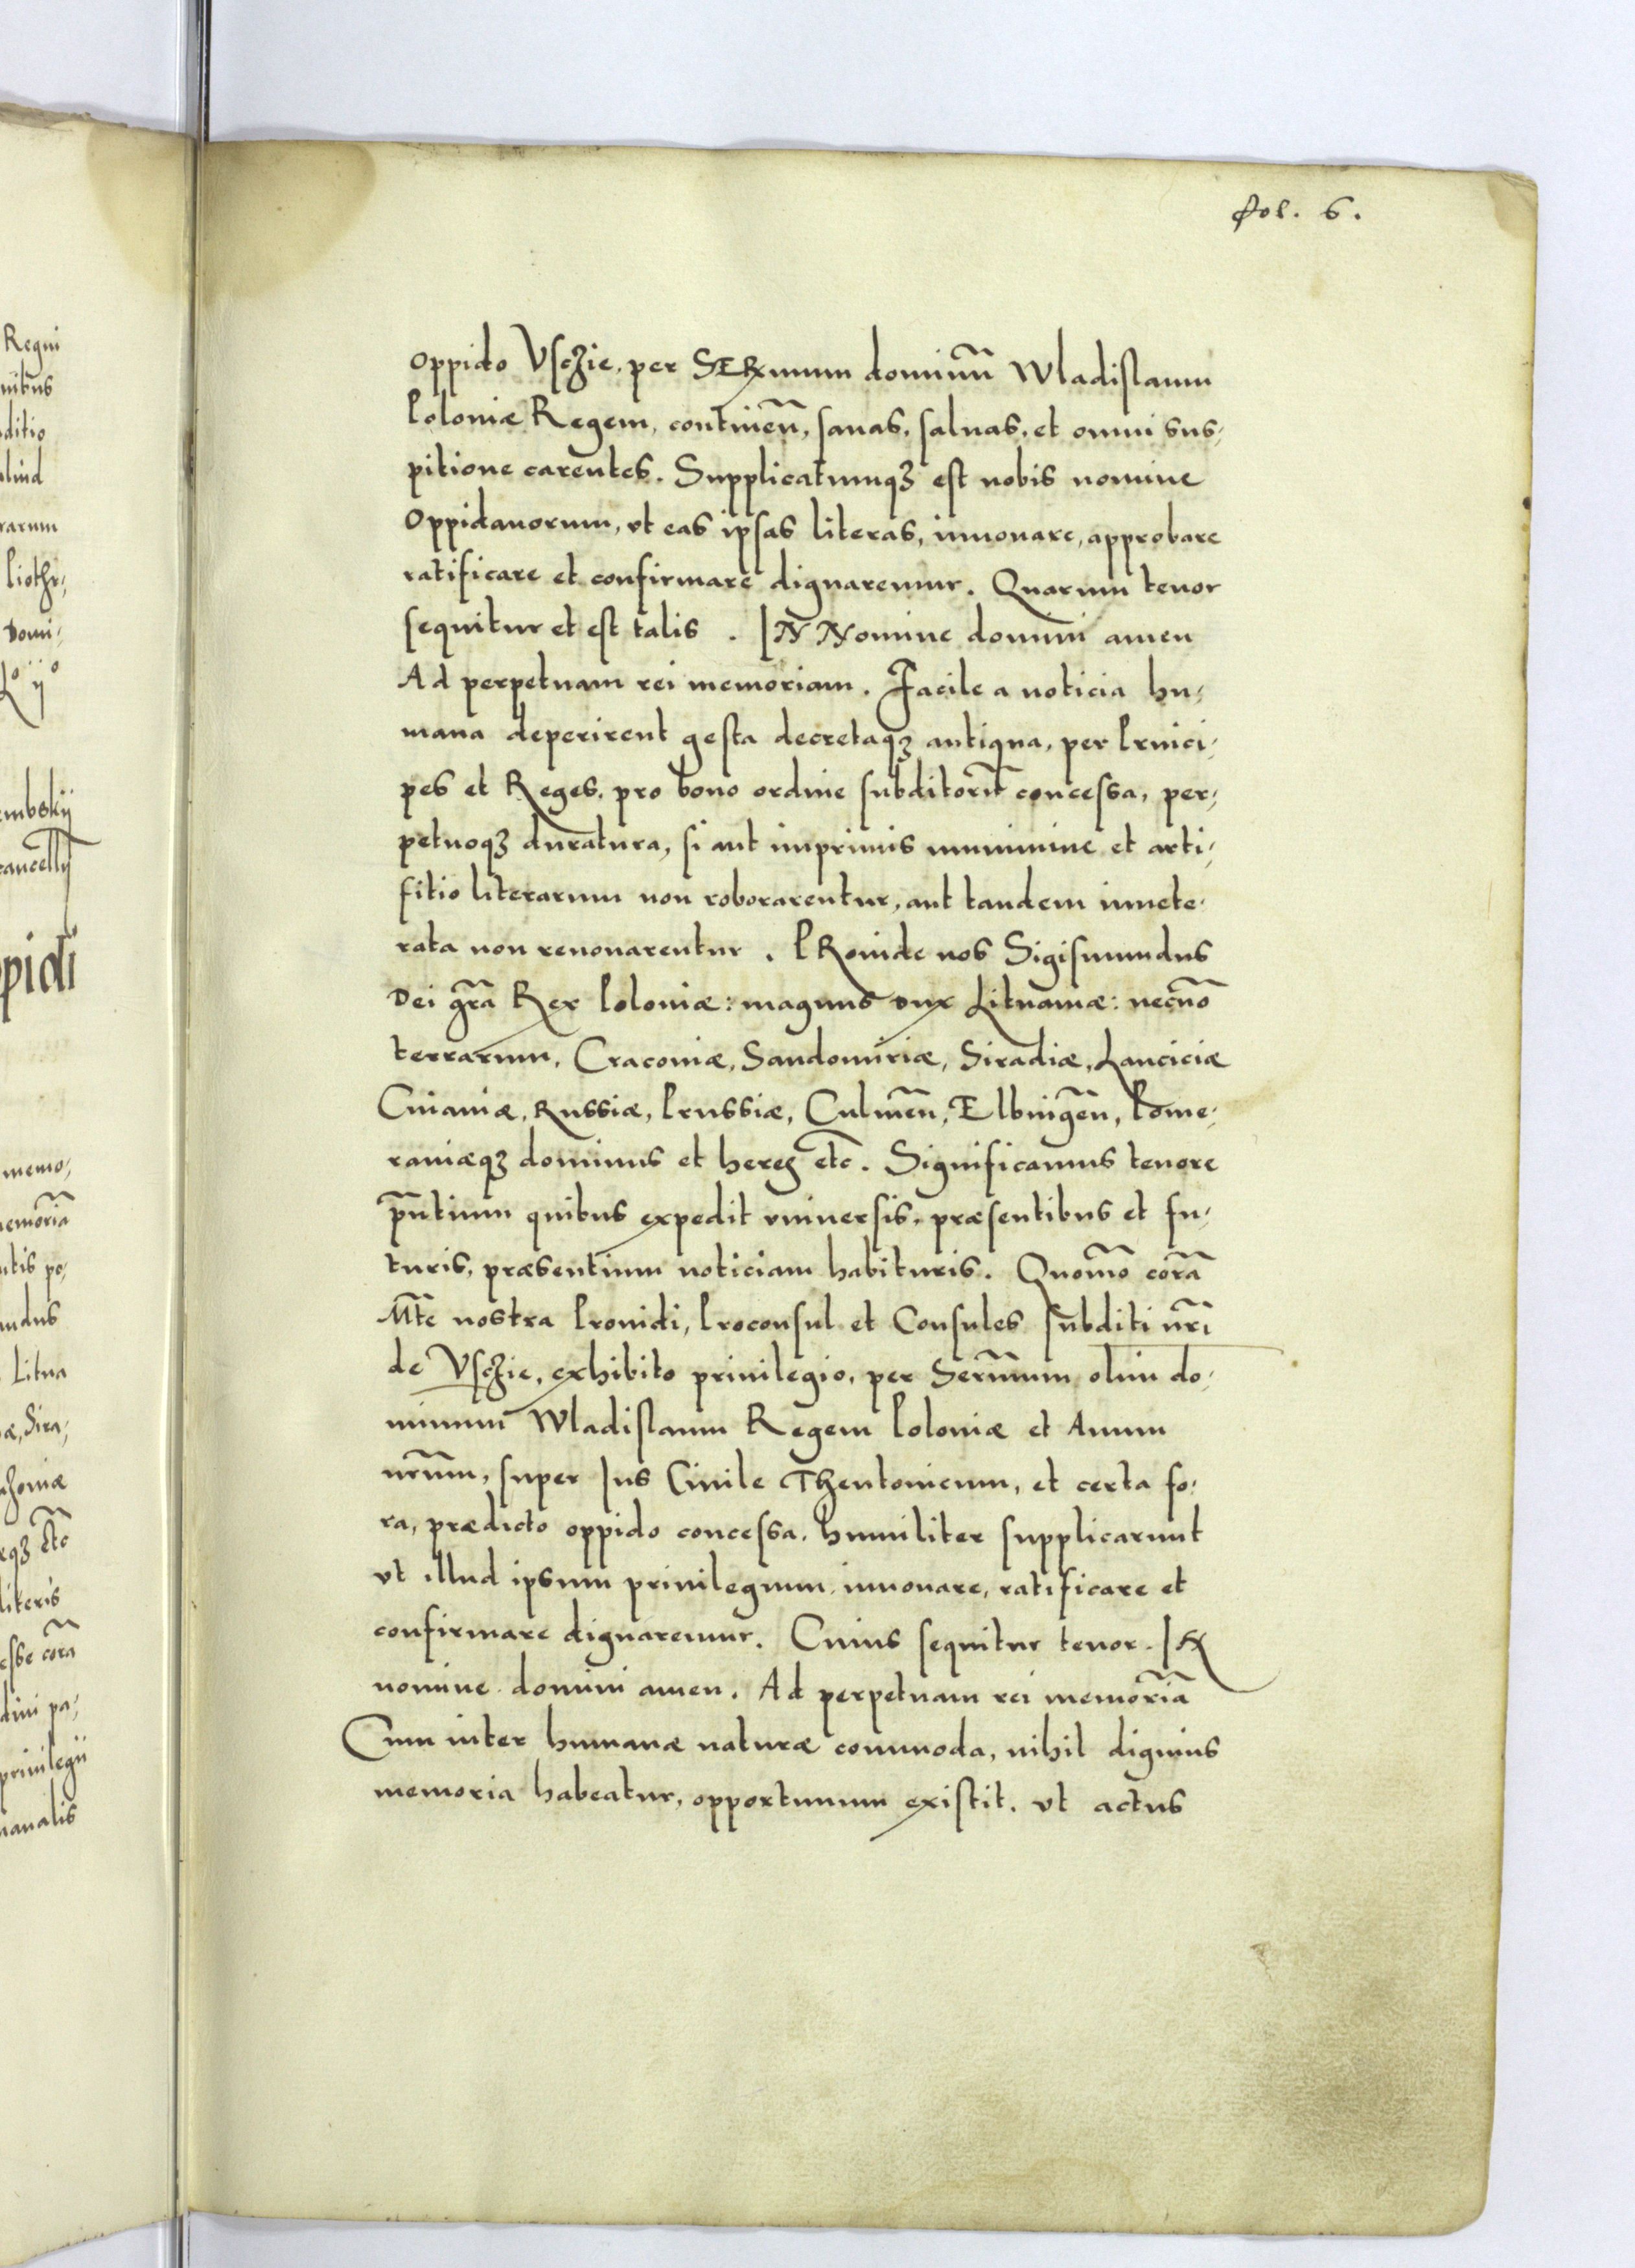 Regni
nibus
ditio
aliud
rarum
Piothr,
Domi,
embskij
cancellij
ppidi
memo,
emoriã
ntis po,
ndus
Litua
æ, Sira,
choniæ
eqꝫ etc̃
literis
esse corã
dini pa,
privilegii
nanalis
fol. 6.
oppido Vsczie, per SERmum dominũ Wladislaum
Poloniæ Regem, continen̄, sanas, saluas, et omni sus,
pitione carentes. Supplicatumqꝫ est nobis nomine
Oppidanorum, vt eas ipsas literas, innouare, approbare
ratificare et confirmare dignaremur. Quarum tenor
sequitur et est talis . IN Nomine domini amen
Ad perpetuam rei memoriam. Facile a noticia hu,
mana deperirent gesta decretaqꝫ antiqua, per Princi,
pes et Reges, pro bono ordine subditorũ concessa, per,
petuoqꝫ duratura, si aut imprimis munimine et arti,
fitio literarum non roborarentur, aut tandem inuete,
rata non renouarentur . PRoinde nos Sigismundus
Dei gr̃a Rex Poloniæ: magnus dux Lituaniæ: necnõ
terrarum, Cracouiæ, Sandomiriæ, Siradiæ, Lanciciæ
Cuiauiæ, Russiæ, Prussiæ, Culmen̄, Elbingen̄, Pome,
raniæqꝫ dominus et heres etc̃. Significamus tenore
pñtium quibus expedit vniuersis, præsentibus et fu,
turis, præsentium noticiam habituris. Quomõ corã
Mt̃e nostra Prouidi, Proconsul et Consules subditi nr̃i
de Vsczie, exhibito priuilegio, per Serm̃um olim do,
minum Wladislaum Regem Poloniæ et Auum
nr̃um, super Ius Ciuile Theutonicum, et certa fo,
ra, prædicto oppido concessa, humiliter supplicarunt
vt illud ipsum priuilegium innouare, ratificare et
confirmare dignaremur. Cuius sequitur tenor. IN
nomine domini amen. Ad perpetuam rei memoriã
Cum inter humanæ naturæ commoda, nihil dignius
memoria habeatur, opportunum existit, vt actus